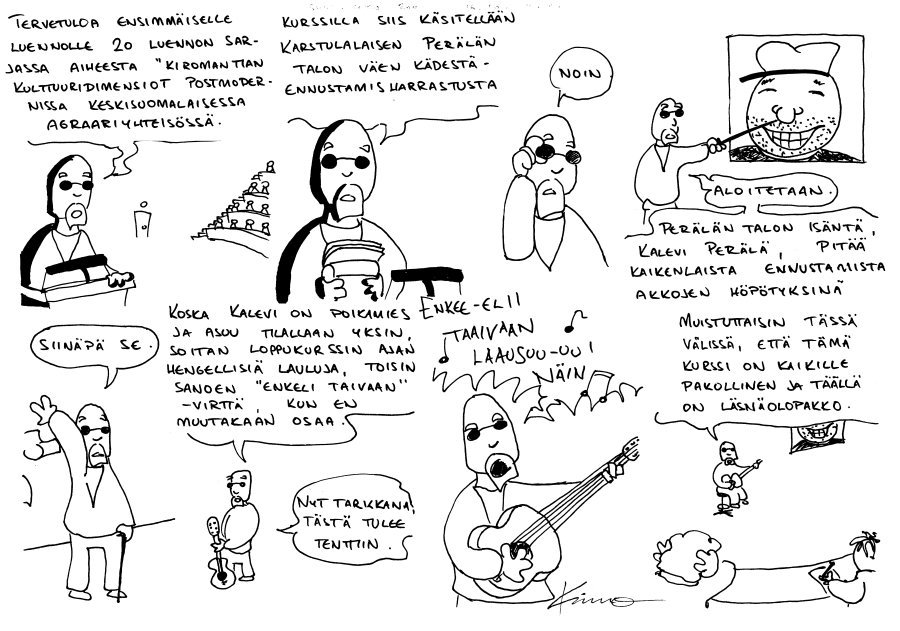 TERVETULOA ENSIMMÄISELLE
LUENNOLLE 20 LUENNON SAR-
JASSA AIHEESTA "KIROMANTIAN
KULTTUURIDIMENSIOT POSTMODER-
NISSA KESKISUOMALAISESSA
AGRAARIYHTEISÖSSÄ.
KURSSILLA SIIS KÄSITELLÄÄN
KARSTULALAISEN PERÄLÄN
TALON VÄEN KÄDESTÄ-
ENNUSTAMISHARRASTUSTA
NOIN.
ALOITETAAN.
PERÄLÄN TALON ISÄNTÄ,
KALEVI PERÄLÄ, PITÄÄ
KAIKENLAISTA ENNUSTAMISTA
AKKOJEN HÖPÖTYKSINÄ
SIINÄPÄ SE.
KOSKA KALEVI ON POIKAMIES
JA ASUU TILALLAAN YKSIN,
SOITAN LOPPUKURSSIN AJAN
HENGELLISIÄ LAULUJA, TOISIN
SANOEN "ENKELI TAIVAAN"
-VIRTTÄ, KUN EN
MUUTAKAAN OSAA.
NYT TARKKANA,
TÄSTÄ TULEE
TENTTIIN.
ENKEE-ELII
TAAIVAAN
LAAUSUU-UU!
NÄIN
MUISTUTTAISIN TÄSSÄ
VÄLISSÄ, ETTÄ TÄMÄ
KURSSI ON KAIKILLE
PAKOLLINEN JA TÄÄLLÄ
ON LÄSNÄOLOPAKKO.
Kimmo